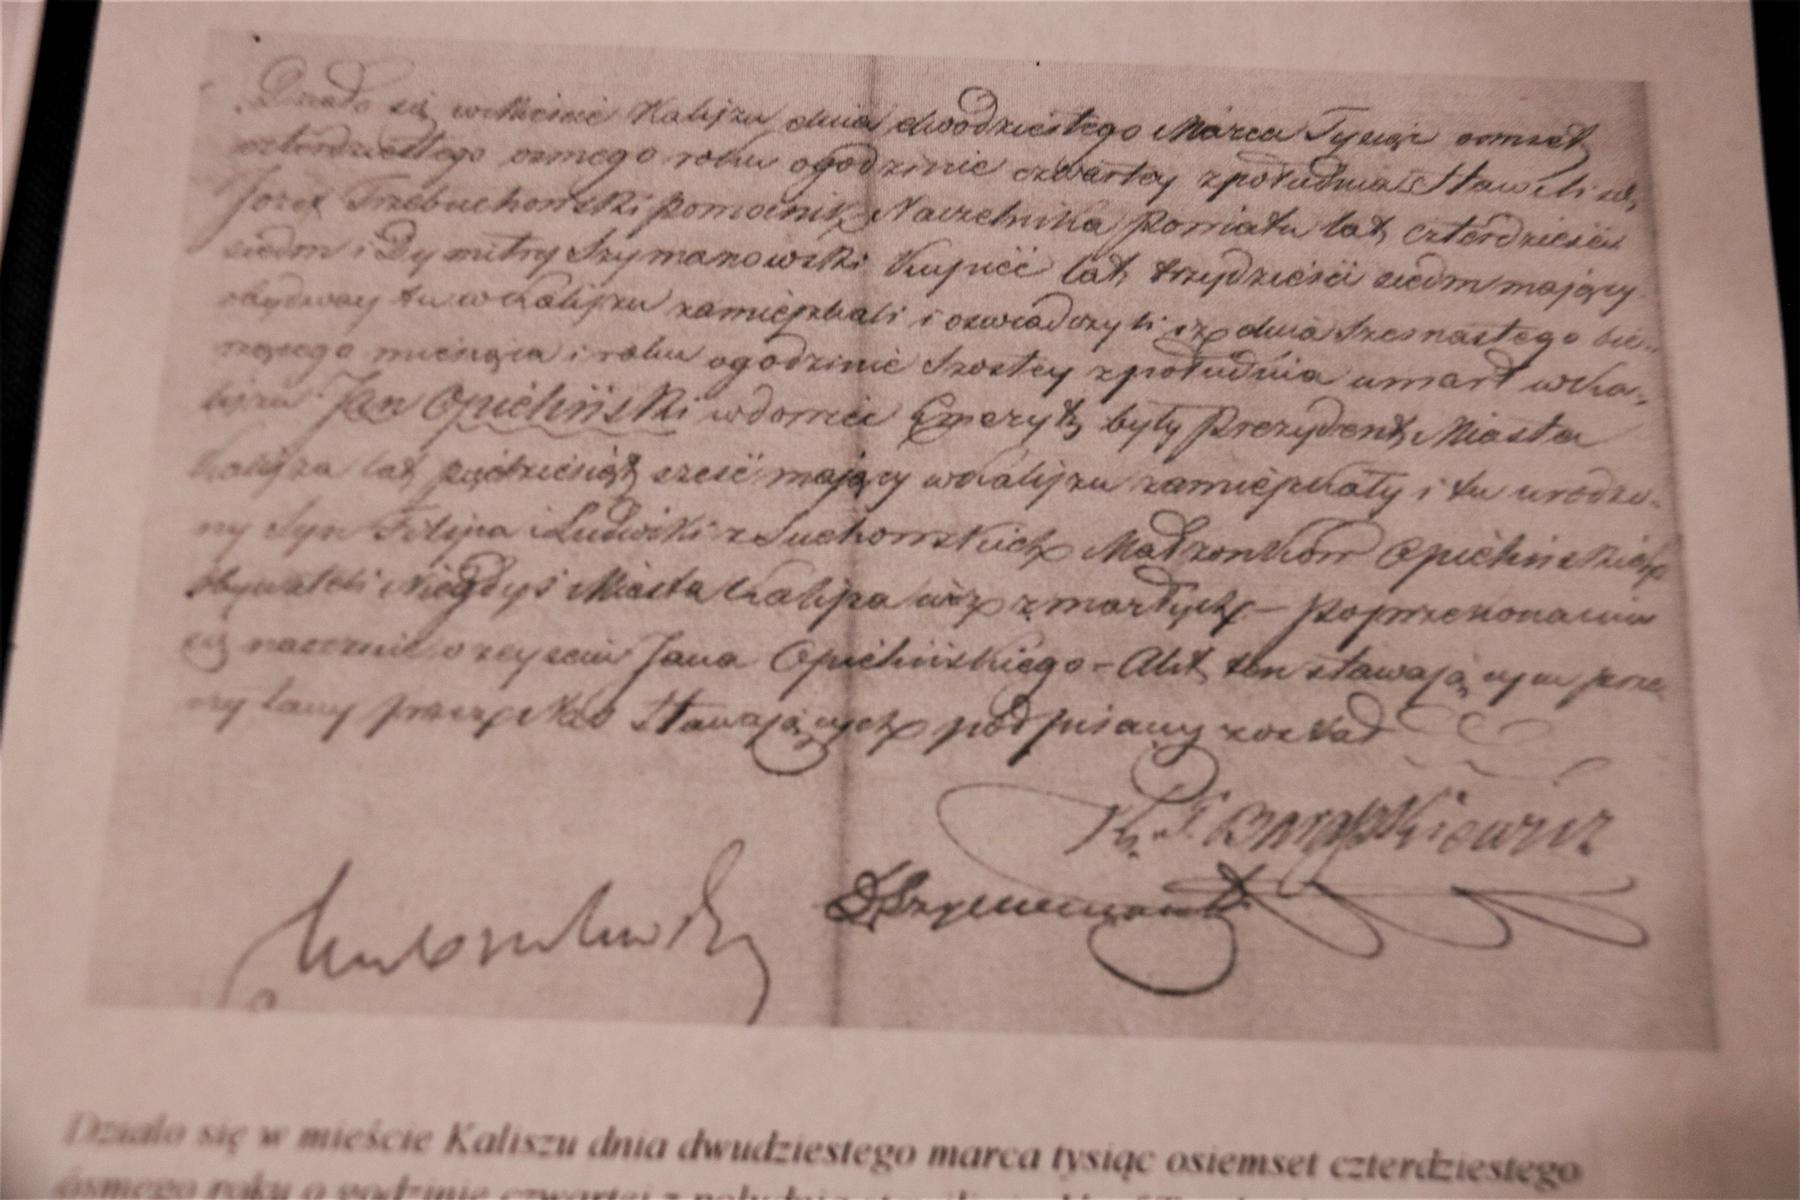 Działo się w Mieście Kaliszu dnia dwódziestego Marca Tysiąc ośmset
czterdziestego osmego roku o godzinie czwartey z południa Stawili się,
Jozef Trzebuchowski pomocnik Naczelnika Powiatu lat czterdzieści
siedm i Dymitry Szymanowski Kupiec lat trzydzieści siedm mający
obydway tu w Kaliszu zamieszkali i oswiadczyli iż dnia Szesnastego bie-
żącego miesiąca i roku o godzinie Szostey z południa umarł w Ka-
liszu Jan Opieliński wdowiec Emeryt, były Prezydent Miasta
Kalisza lat pięćdziesiąt sześć mający w Kaliszu zamieszkały i tu urodzo-
ny Syn Filipa i Ludwiki z Suchorskich Małżonków Opielińskich
obywateli Niegdyś Miasta Kalisza już zmarłych – Po przekonaniu
się naocznie o zejściu Jana Opielińskiego – Akt ten stawającym prze-
czytany przez Nas i Stawających podpisany został
D Szymanowski
Działo się w mieście Kaliszu dnia dwudziestego marca tysiąc osiemset czterdziestego
ósmego roku o godzinie czwartej z południa